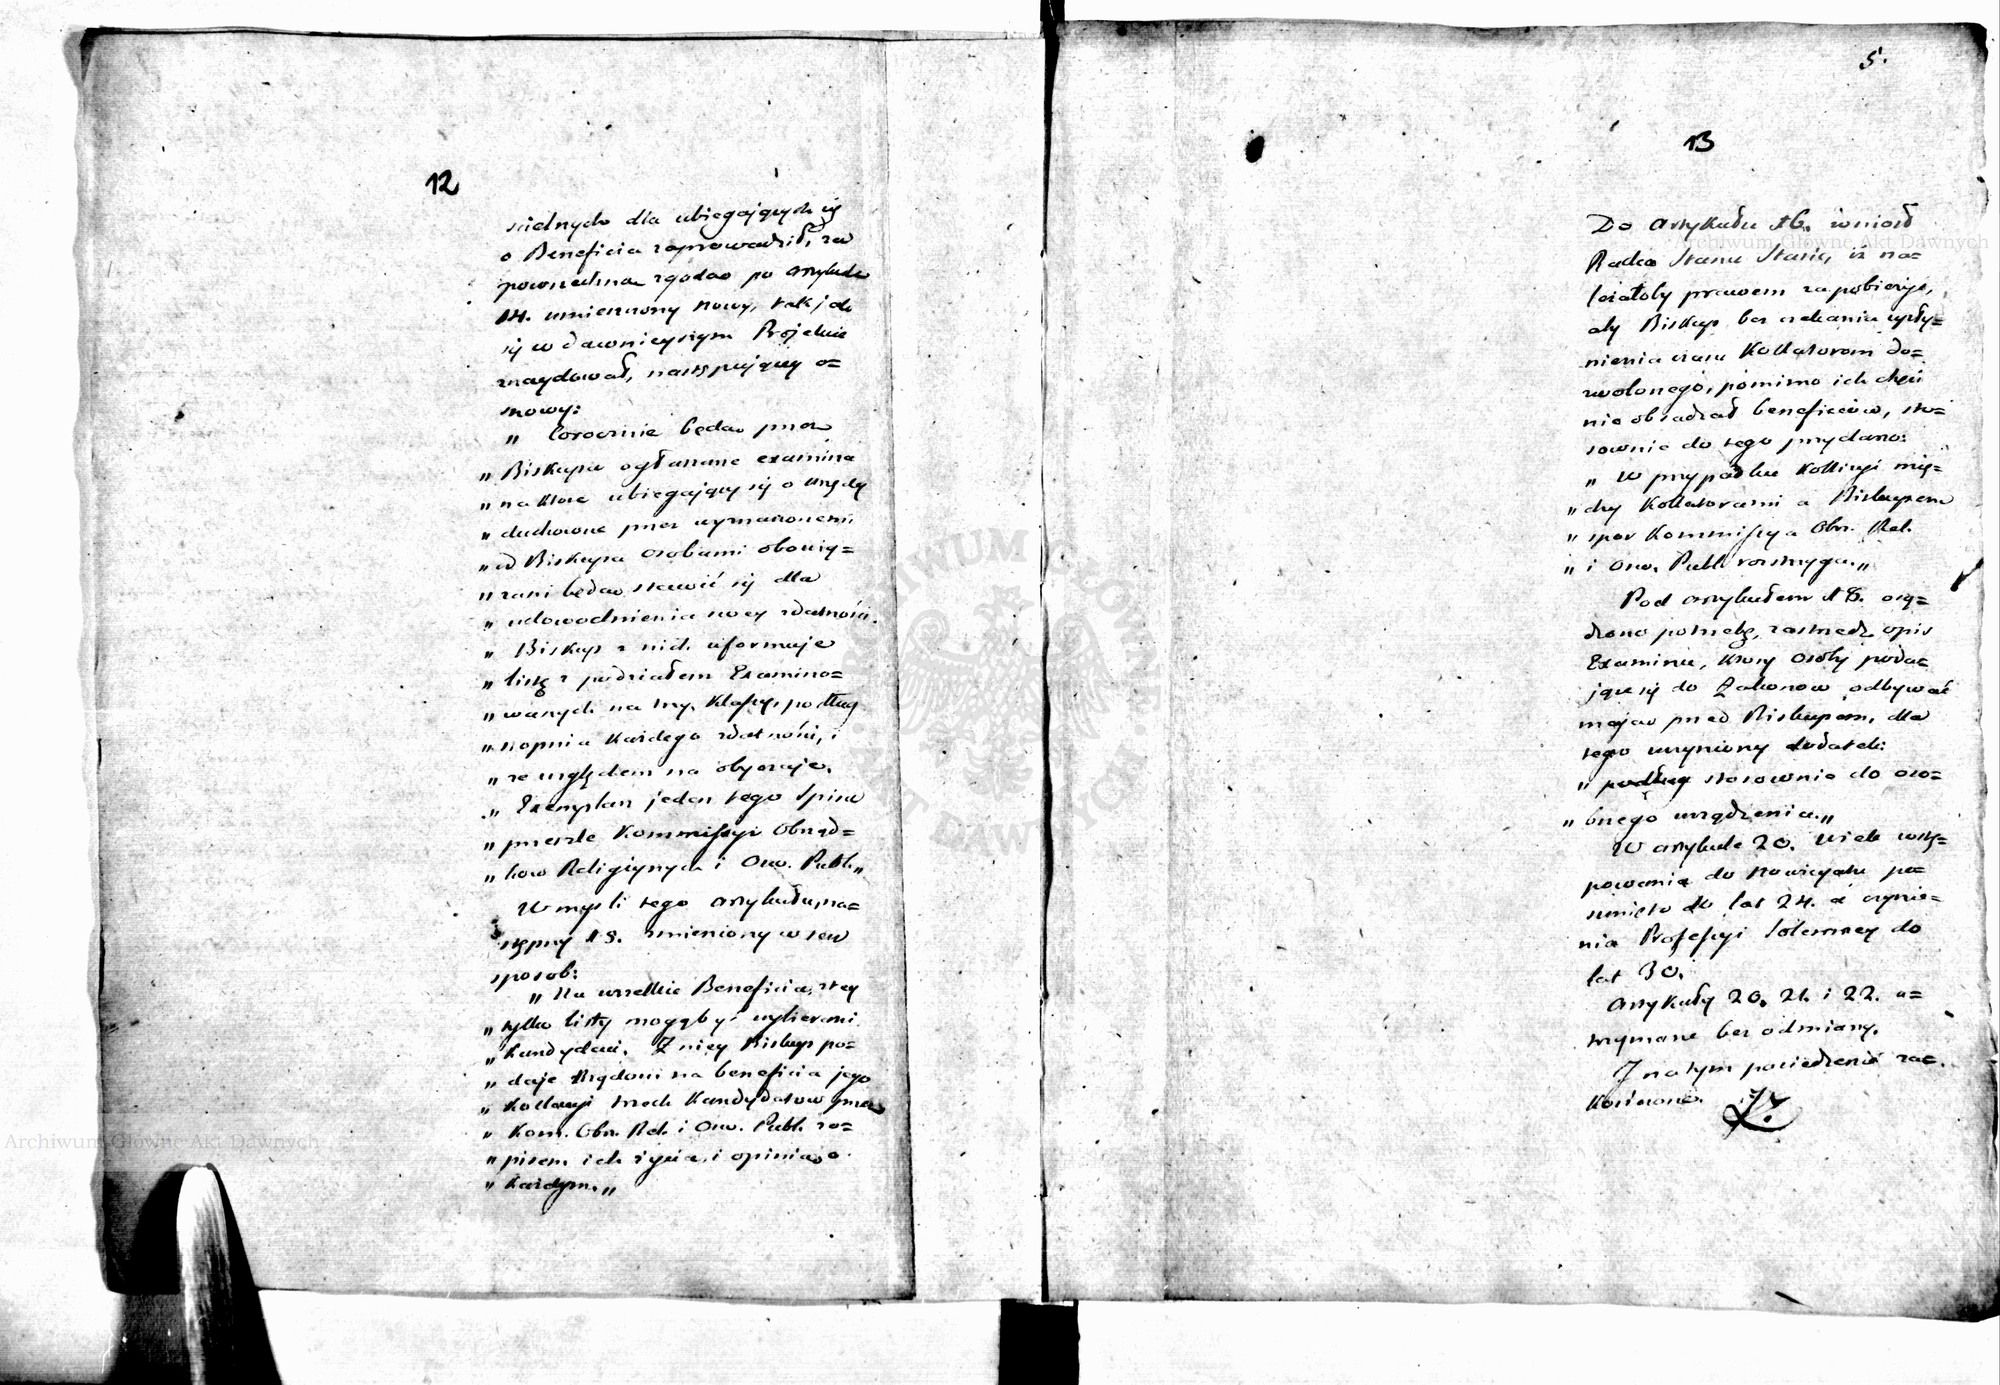 12
cielnych dla ubiegających się
o Beneficia zaprowadził, za
powszechną zgodą po artykule
14. umieszczony nowy, tak jak
się w dawnieyszym Projekcie
znaydował, następujący o=
snowy:
„ Corocznie będą przez
„ Biskupa ogłaszane examina
„ na które ubiegający się o Urzędy
„ duchowne przez wyznaczonemi
„ od Biskupa osobami obowią=
„ zani będą stawić się dla
„ udowodnienia swey zdatności.
„ Biskup z nich uformuje
„ listę z podziałem Examino=
„ wanych na trzy Klassy, podług
„ stopnia każdego zdatności, i
„ ze względem na obyczaje.
„ Exemplarz jeden tego Spisu
„ prześle Kommissyi Obrząd=
„ kow Religiynych i Ośw. Publ.„
W myśli tego artykułu, na=
stępny 15. zmieniony w ten
sposób:
„ Na wszelkie Beneficia, z tey
„ tylko listy mogą być wybierani
„ Kandydaci. Z niey Biskup po=
„ daje Rządowi na beneficia jego
„ Kollacyi trzech Kandydatow przez
„ Kom. Obr. Rel. i Ośw. Publ. z o=
„ pisem ich życia, i opinią o
„ każdym.„
5.
13
Do Artykułu 16. wniósł
Radca Stanu Staszic, iż na=
leżałoby prawem zapobiedz,
aby Biskup bez czekania upły=
nienia czasu Kollatorom do=
zwolonego, pomimo ich chęci
nie obsadzał beneficiów, sto=
sownie do tego przydano:
„ W przypadku Kollizyi mię=
„ dzy Kollatorami a Biskupem
„ spor Kommissya Obr. Rel.
„ i Ośw. Publ. rozstrzyga.„
Pod artykułem 18. osą=
dzono potrzebę, zastrzedz opis
Examinu, który osoby poda=
jące się do Zakonow odbywać
mają przed Biskupem, dla
tego uczyniony dodatek:
„ podług stosownie do oso=
„ bnego urządzenia.„
W artykule 20. wiek wstę=
powania do Nowicyatu po=
sunięto do lat 24. a czynie=
nia Professyi Solenney do
lat 30.
Artykuły 20. 21. i 22. u=
trzymane bez odmiany.
I na tym posiedzenie za=
kończono.
Archiwum Główne Akt Dawnych
Archiwum Główne Akt Dawnych
ARCHIWUM GŁÓWNE AKT DAWNYCH